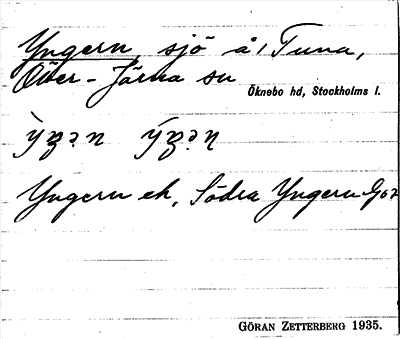 Yngern, sjö å, Tuna,
Över-Järna sn
Öknebo hd, Stockholms l.
Yngern ek, Södra Yngern Goz
GÖRAN ZETTERBERG 1935.